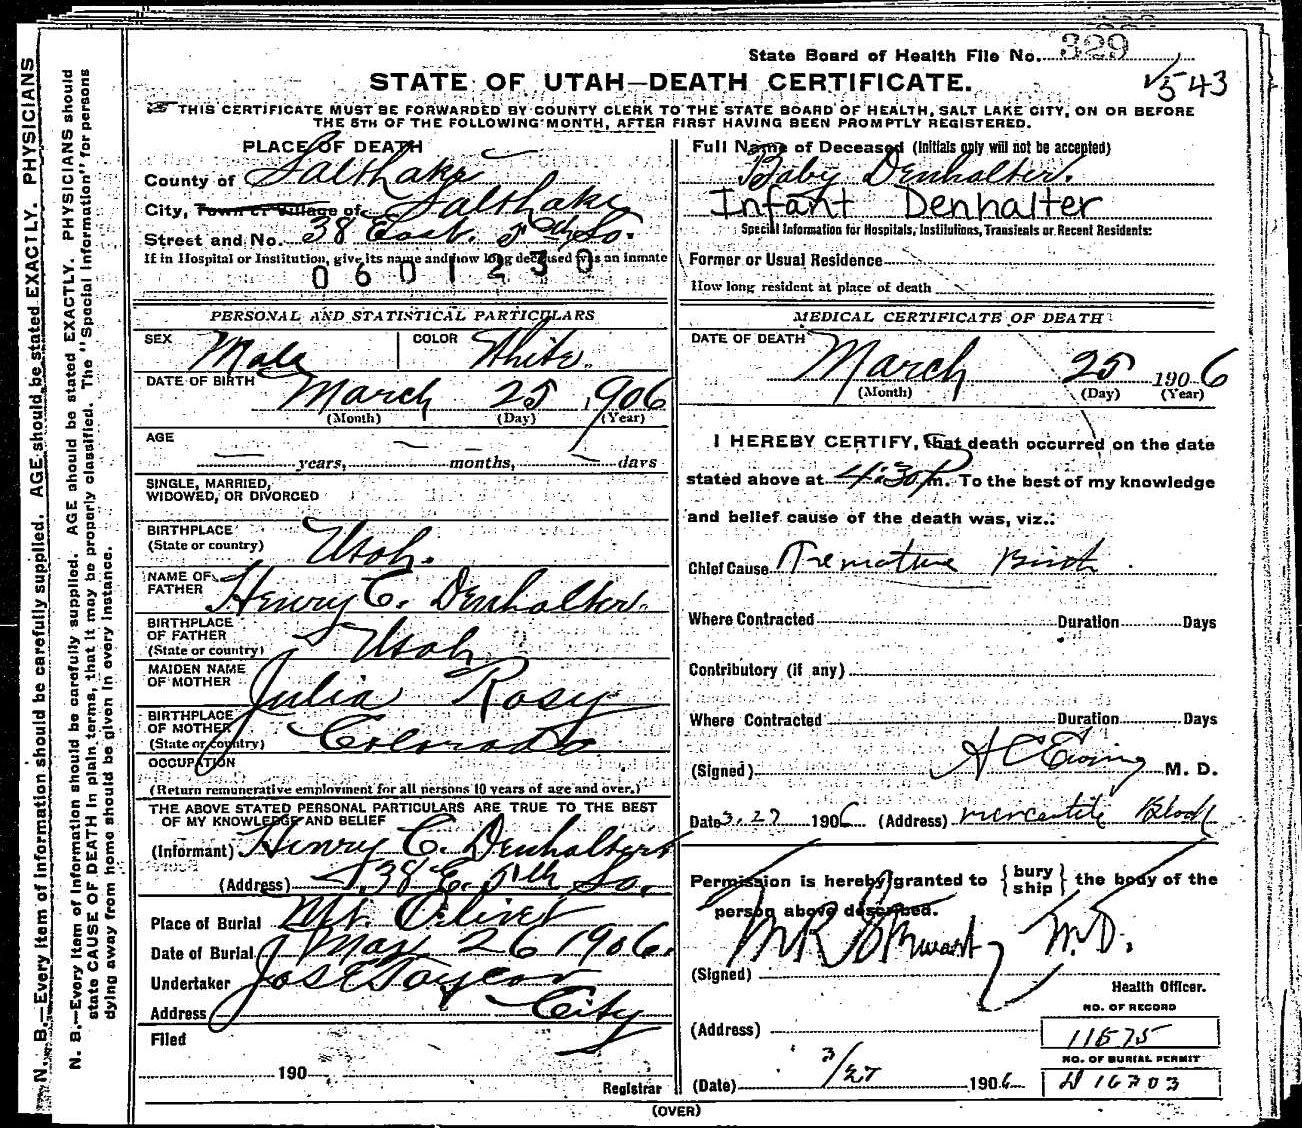 N. B.—Every item of information should be carefully supplied. AGE should be stated EXACTLY. PHYSICIANS
N. B.—Every item of information should be carefully supplied. AGE should be stated EXACTLY. PHYSICIANS should
state CAUSE OF DEATH in plain terms, that it may be properly classified. The "Special Information" for persons
dying away from home should be given in every instance.
State Board of Health File No. 329
543
STATE OF UTAH—DEATH CERTIFICATE.
THIS CERTIFICATE MUST BE FORWARDED BY COUNTY CLERK TO THE STATE BOARD OF HEALTH, SALT LAKE CITY, ON OR BEFORE
THE 5TH OF THE FOLLOWING MONTH, AFTER FIRST HAVING BEEN PROMPTLY REGISTERED.
PLACE OF DEATH
County of Salt Lake
City, Town or Village of Salt Lake
Street and No. 38 East 5th So.
If in Hospital or Institution, give its name and how long deceased was an inmate
0601230
Full Name of Deceased (Initials only will not be accepted)
Baby Denhalter.
Infant Denhalter
Special Information for Hospitals, Institutions, Transients or Recent Residents:
Former or Usual Residence
How long resident at place of death
PERSONAL AND STATISTICAL PARTICULARS
SEX Male COLOR White.
DATE OF BIRTH March 25 1906
(Month) (Day) (Year)
AGE
— years, — months, — days
SINGLE, MARRIED,
WIDOWED, OR DIVORCED
BIRTHPLACE
(State or country) Utah.
NAME OF
FATHER Henry C. Denhalter.
BIRTHPLACE
OF FATHER
(State or country) Utah
MAIDEN NAME
OF MOTHER Julia Rosy
BIRTHPLACE
OF MOTHER
(State or country) Colorado
OCCUPATION
(Return remunerative employment for all persons 10 years of age and over.)
THE ABOVE STATED PERSONAL PARTICULARS ARE TRUE TO THE BEST
OF MY KNOWLEDGE AND BELIEF
(Informant) Henry C. Denhalter
(Address) 38 E. 5th So.
Place of Burial Mt. Olivet
Date of Burial Mar 26 1906.
Undertaker Jos E Taylor
Address City
Filed
190
Registrar
MEDICAL CERTIFICATE OF DEATH
DATE OF DEATH
March 25 1906
(Month) (Day) (Year)
I HEREBY CERTIFY, that death occurred on the date
stated above at 4:30 P m. To the best of my knowledge
and belief cause of the death was, viz.:
Chief Cause Premature Birth
Where Contracted Duration Days
Contributory (if any)
Where Contracted Duration Days
(Signed) A C Ewing M. D.
Date 3.27 1906 (Address) mercantile Block
Permission is hereby granted to { bury ship } the body of the
person above described.
(Signed) M.D.
Health Officer.
(Address)
NO. OF RECORD
11575
NO. OF BURIAL PERMIT
16303
(Date) 3/27 1906
(OVER)